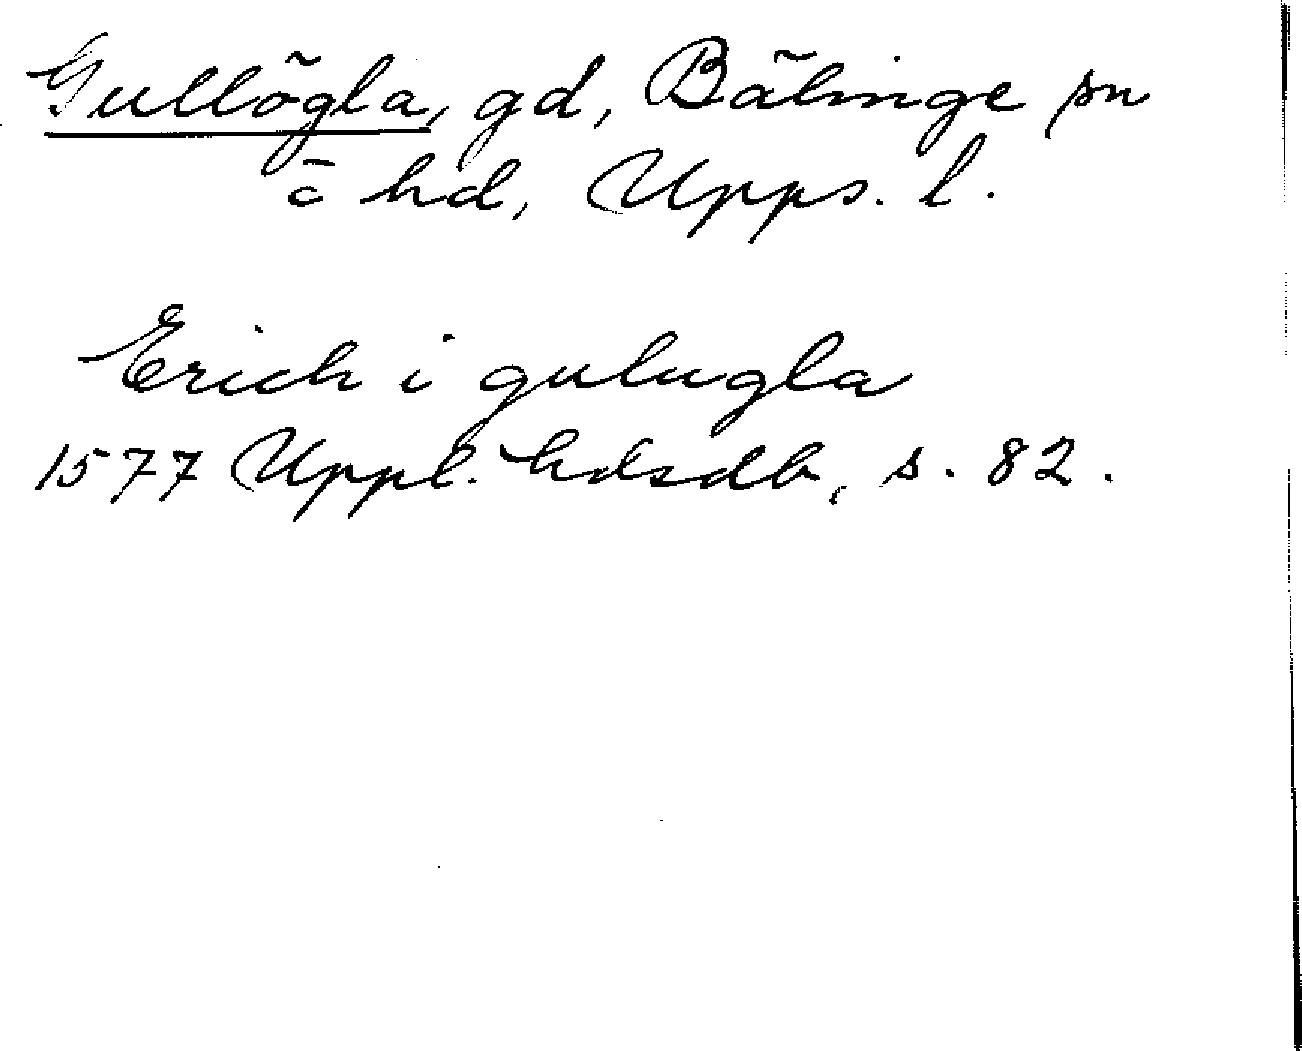 Gullögla, gd, Bälinge sn
o hd, Upps. l.
Erich i gulugla
1577 Uppl. hdsdb, s. 82.